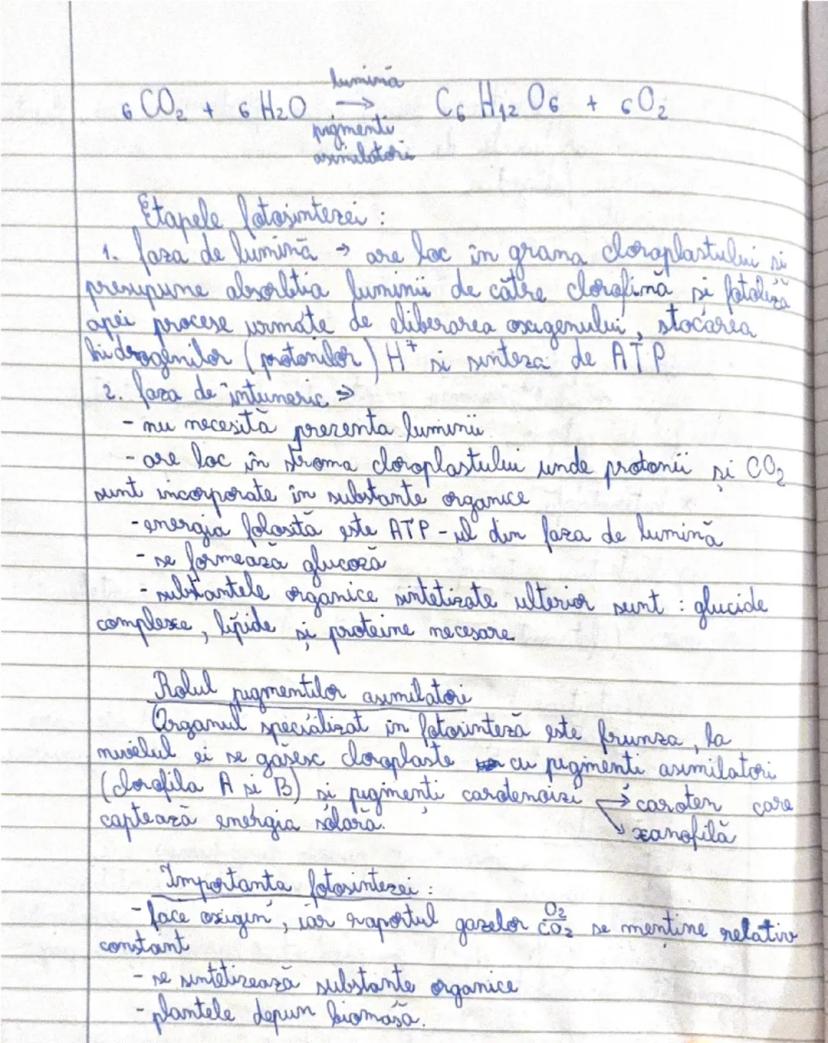 lumină
6 CO2 + 6 H2O → C6 H12 O6 + 6 O2
pigmenti
asimilatori
Etapele fotosintezei :
1. faza de lumină → are loc în grana cloroplastului si
presupune absorbtia luminii de către clorofină și fotoliza
apei procese urmate de eliberarea oxigenului, stocarea
hidrogenilor (protonilor) H+ si sinteza de ATP
2. faza de întuneric ⇒
- nu necesită prezenta luminii.
- are loc în stroma cloroplastului unde protonii și CO2
sunt incorporate în substante organice
- energia folosită este ATP-ul din faza de lumină
- se formează glucoză
- substantele organice sintetizate ulterior sunt : glucide
complexe, lipide și proteine necesare
Rolul pigmentilor asimilatori
Organul specializat în fotosinteză este frunza, la
nivelul ei se găsesc cloroplaste cu pigmenti asimilatori
(clorofila A si B) si pigmenti carotenoizi → caroten care
captează energia solară. ↘ xanofilă
Importanta fotosintezei :
- face oxigen, iar raportul gazelor O2/CO2 se mentine relativ
constant
- se sintetizează substante organice
- plantele depun biomasă.